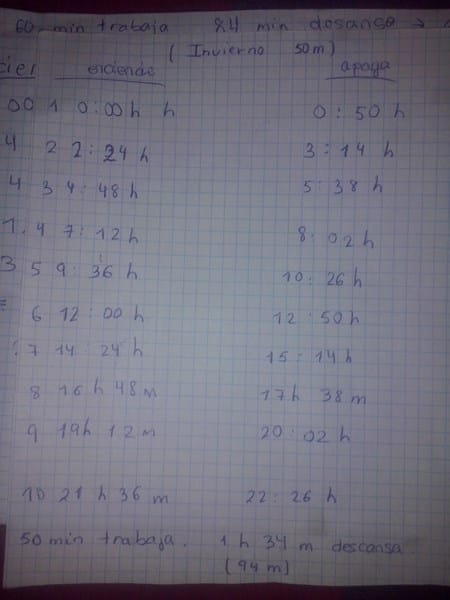 60 min trabaja 84 min dosansa →
( Invierno 50m )
enciende apaga
00 1 0:00 h h 0:50 h
4 2 2:24 h 3:14 h
4 3 4:48 h 5:38 h
1. 4 7:12 h 8:02 h
3 5 9:36 h 10:26 h
6 12:00 h 12:50 h
7 14:24 h 15:14 h
8 16 h 48 m 17 h 38 m
9 19 h 12 m 20:02 h
10 21 h 36 m 22:26 h
50 min trabaja. 1 h 34 m descansa
(94 m)